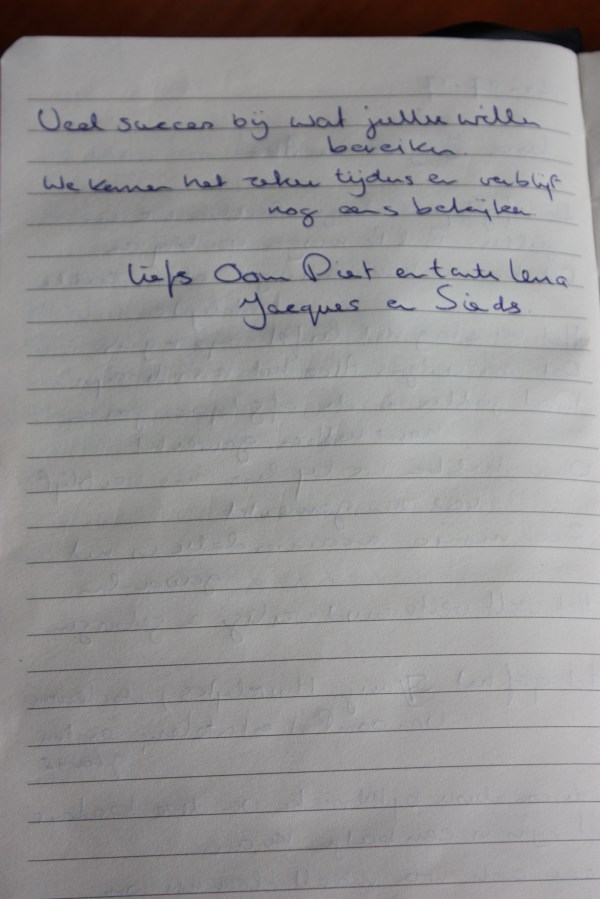 Veel succes bij wat jullie willen
bereiken.
We komen het zeker tijdens en verblijf
nog eens bekijken
liefs Oom Piet en tante Lena
Jacques en Sieds